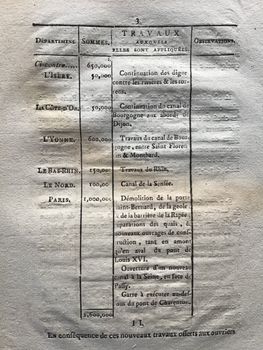 3
DÉPARTEMENS.
SOMMES.
TRAVAUX
AUXQUELS
ELLES SONT APPLIQUÉES.
OBSERVATIONS.
Ci-contre.....
650,000
L'ISÈRE.
50,000
Continuation des digues
contre les rivières & les tor-
rens.
LA CÔTE-D'OR.
50,000
Continuation du canal de
Bourgogne aux abords de
Dijon.
L'YONNE.
600,000
Travaux du canal de Bour-
gogne, entre Saint Florentin
& Montbard.
LE BAS-RHIN.
150,000
Travaux du Rhin.
LE NORD.
100,000
Canal de la Sensée.
PARIS.
1,000,000
Démolition de la porte
Saint-Bernard, de la geole
& de la barrière de la Rapée
réparations des quais, &
nouveaux ouvrages de cons-
truction, tant en amont
qu'en aval du pont de
Louis XVI.
Ouverture d'un nouveau
canal à la Seine, en face de
Passy.
Garre à exécuter au-des-
sous du pont de Charenton.
2,600,000
II.
En conséquence de ces nouveaux travaux offerts aux ouvriers